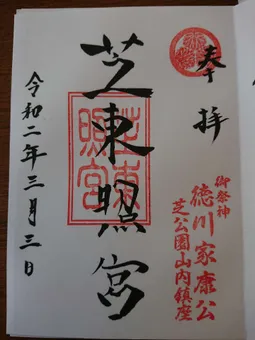 奉拝
御祭神
徳川家康公
芝公園山内鎮座
芝東照宮
芝東照宮
令和二年三月三日